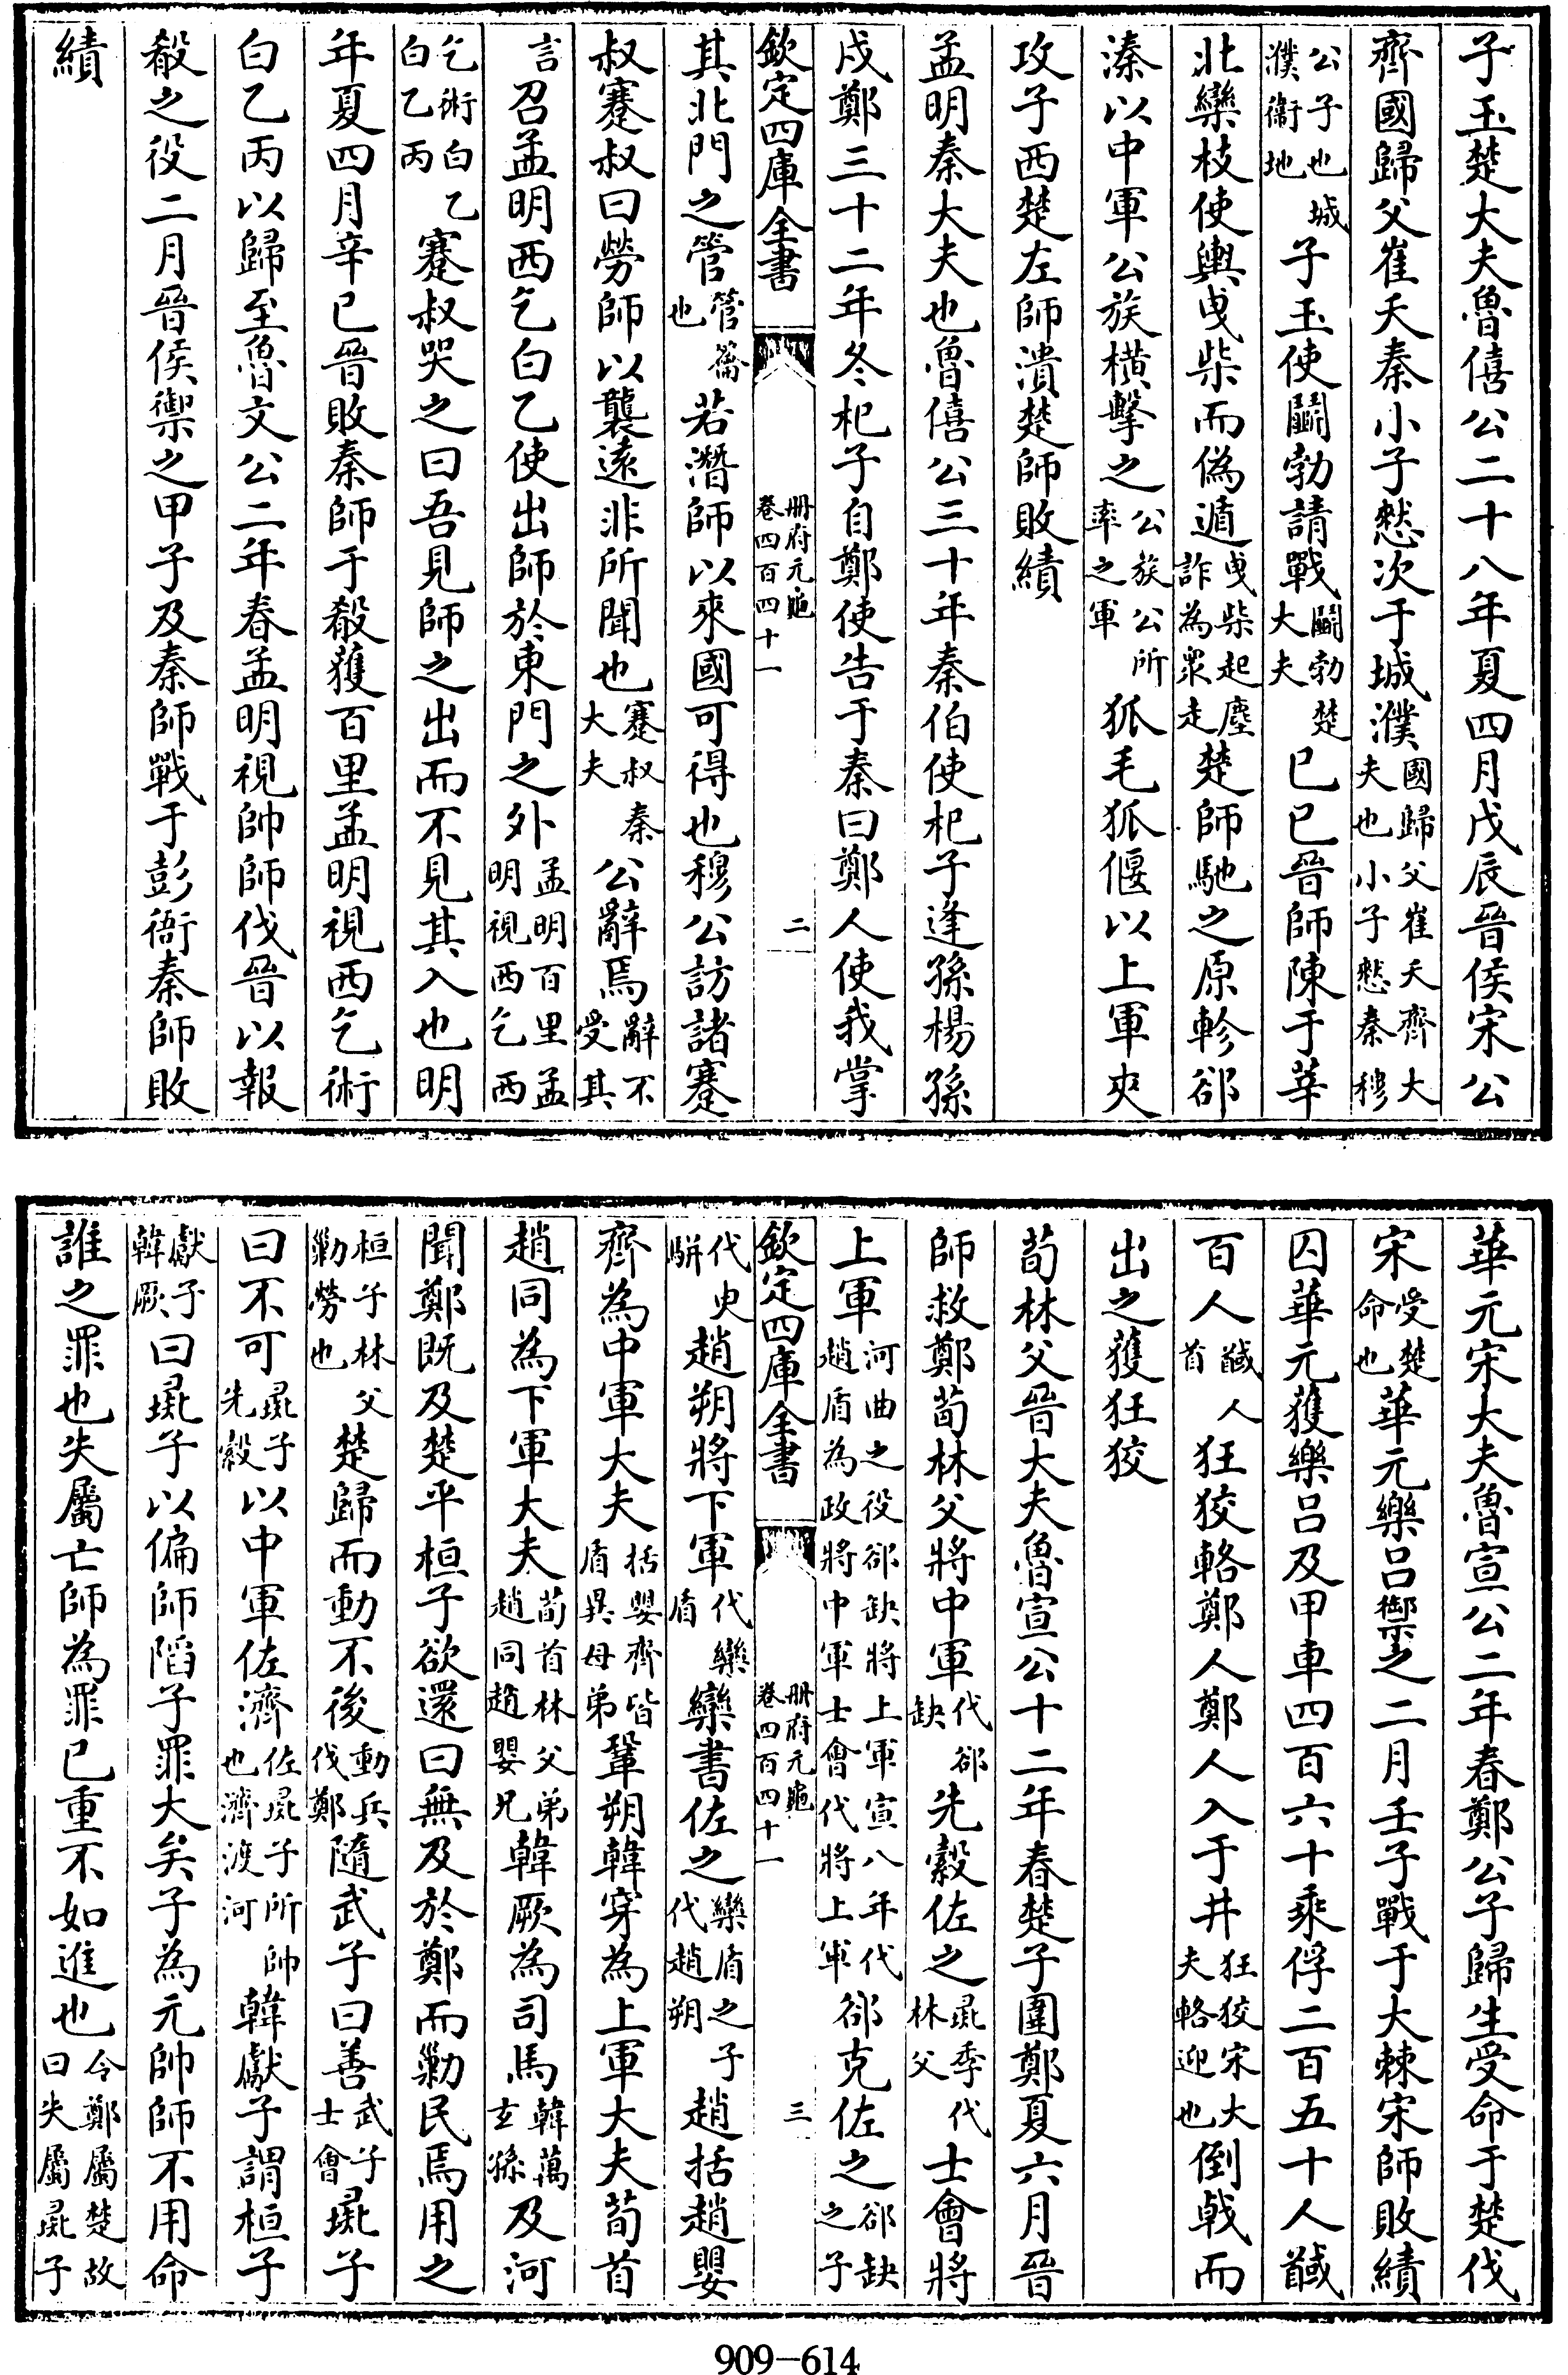 子玉楚大夫魯僖公二十八年夏四月戊辰晉侯宋公
齊國歸父崔夭秦小子憖次于城濮國歸父崔夭齊大夫也小子憖秦穆
公子也城濮衛地子玉使鬬勃請戰鬬勃楚大夫已巳晉師陳于莘
北欒枝使輿曳柴而偽遁曳柴起塵詐為衆走楚師馳之原軫郤
溱以中軍公族橫擊之公族公所率之軍狐毛狐偃以上軍夾
攻子西楚左師潰楚師敗績
孟明秦大夫也魯僖公三十年秦伯使杞子逢孫楊孫
戍鄭三十二年冬杞子自鄭使告于秦曰鄭人使我掌
欽定四庫全書 冊府元龜卷四百四十一 二
其北門之管管籥也若潛師以來國可得也穆公訪諸蹇
叔蹇叔曰勞師以襲遠非所聞也蹇叔秦大夫公辭焉辭不受其
言召孟明西乞白乙使出師於東門之外孟明百里孟明視西乞西
乞術白乙白乙丙蹇叔哭之曰吾見師之出而不見其入也明
年夏四月辛巳晉敗秦師于殽獲百里孟明視西乞術
白乙丙以歸至魯文公二年春孟明視帥師伐晉以報
殽之役二月晉侯禦之甲子及秦師戰于彭衙秦師敗
績
華元宋大夫魯宣公二年春鄭公子歸生受命于楚伐
宋受楚命也華元樂呂禦之二月壬子戰于大棘宋師敗績
囚華元獲樂呂及甲車四百六十乘俘二百五十人馘
百人馘人首狂狡輅鄭人鄭人入于井狂狡宋大夫輅迎也倒戟而
出之獲狂狡
荀林父晉大夫魯宣公十二年春楚子圍鄭夏六月晉
師救鄭荀林父將中軍代郤缺先縠佐之彘季代林父士會將
上軍河曲之役郤缺將上軍宣八年代趙盾為政將中軍士會代將上軍郤克佐之郤缺之子
欽定四庫全書 冊府元龜卷四百四十一 三
代臾駢趙朔將下軍代欒盾欒書佐之欒盾之子代趙朔趙括趙嬰
齊為中軍大夫括嬰齊皆盾異母弟鞏朔韓穿為上軍大夫荀首
趙同為下軍大夫荀首林父弟趙同趙嬰兄韓厥為司馬韓萬玄孫及河
聞鄭既及楚平桓子欲還曰無及於鄭而勦民焉用之
桓子林父勦勞也楚歸而動不後動兵伐鄭隨武子曰善武子士會彘子
曰不可彘子先縠以中軍佐濟佐彘子所帥也濟渡河韓獻子謂桓子
獻子韓厥曰彘子以偏師陷子罪大矣子為元帥師不用命
誰之罪也失屬亡師為罪已重不如進也今鄭屬楚故曰失屬彘子
909-614